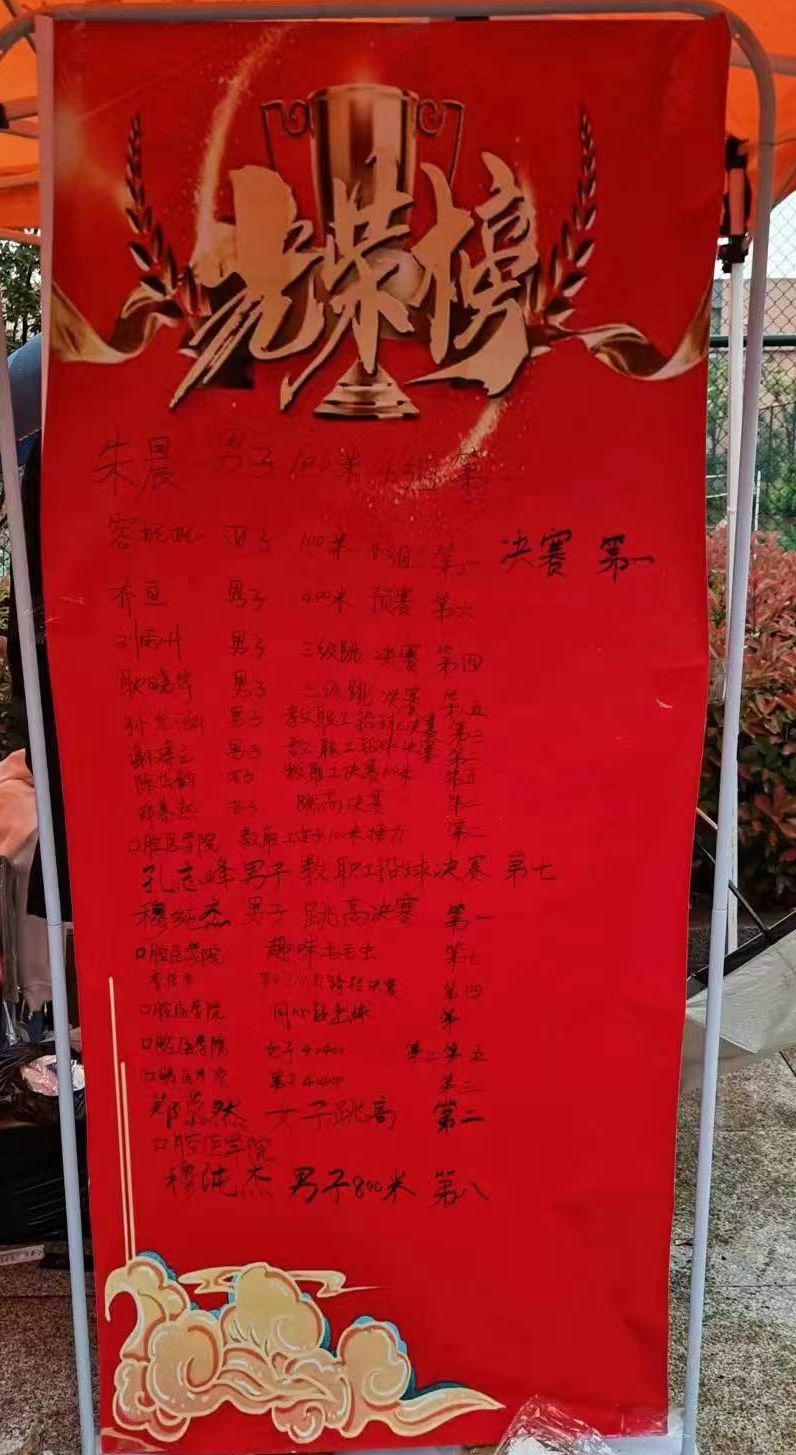 光荣榜
朱晨 男子 100米 小组 第一
子 100米 小组 第一 决赛 第一
乔 男子 400米 预赛 第六
刘雨 男子 三级跳 决赛 第四
耿 男子 三级跳 决赛 第五
孙 男子 教职工铅球决赛 第二
谢 男子 教职工铅球决赛 第二
陈 女子 教职工决赛100米 第五
郑慕然 女子 跳高决赛 第二
口腔医学院 教职工女子100米接力 第二
孔志峰 男子 教职工铅球决赛 第七
穆纯杰 男子 跳高决赛 第一
口腔医学院 趣味毛毛虫 第七
决赛 第四
口腔医学院 同心 球 第
口腔医学院 女子4×400 第二第五
口腔医学院 男子4×400 第三
郑慕然 女子跳高 第二
口腔医学院
穆纯杰 男子800米 第八